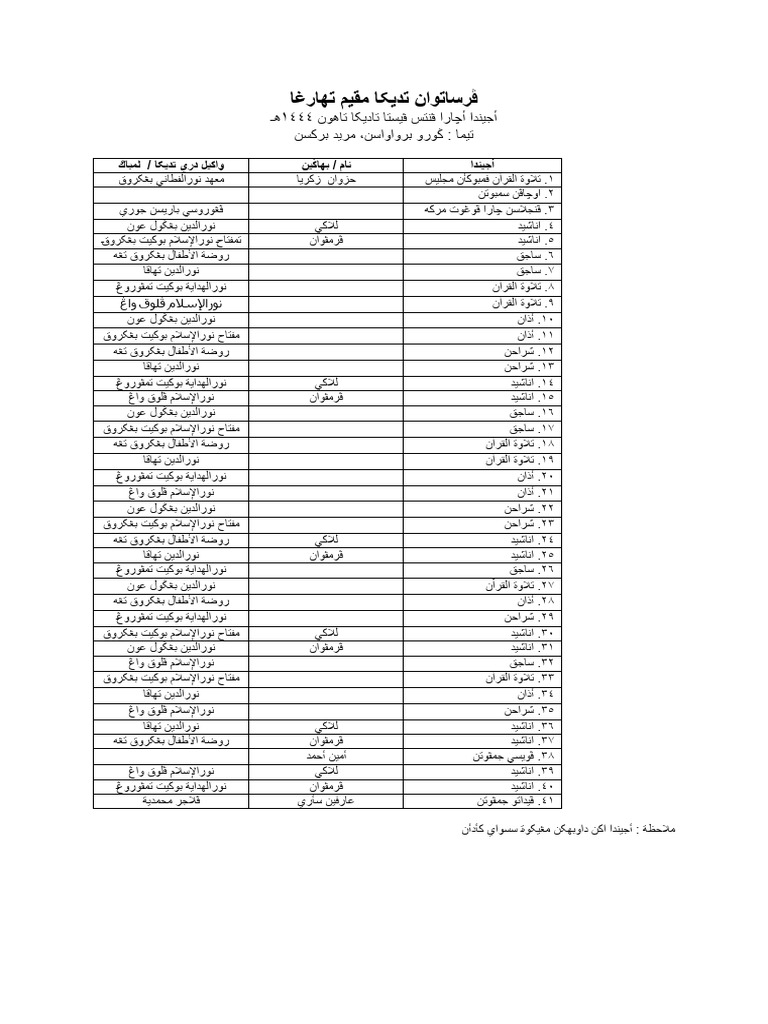 ڤرساتوان تديكا مقيم تهارغا
أجيندا أچارا ڤنتس ڤيستا تاديكا تاهون ١٤٤٤هـ
تيما : ݢورو برواواسن، مريد بركسن
أجيندا نام / بهاݢين واكيل دري تديكا / لمباݢ
١. تلاوة القران ڤمبوكأن مجليس حزوان زكريا معهد نورالفطاني بڠكروق
٢. اوچاڤن سمبوتن
٣. ڤنجلاسن چارا ڤوڠوت مركه ڤڠوروسي باريسن جوري
٤. اناشيد للاكي نورالدين بڠكول عون
٥. اناشيد ڤرمڤوان تمفتاح نورالإسلام بوكيت بڠكروق
٦. ساجق روضة الأطفال بڠكروق تڠه
٧. ساجق نورالدين تهاڤا
٨. تلاوة القران نورالهداية بوكيت تمڤوروڠ
٩. تلاوة القران نورالإسلام ڤلوق واڠ
١٠. أذان نورالدين بڠكول عون
١١. أذان مفتاح نورالإسلام بوكيت بڠكروق
١٢. شراحن روضة الأطفال بڠكروق تڠه
١٣. شراحن نورالدين تهاڤا
١٤. اناشيد للاكي نورالهداية بوكيت تمڤوروڠ
١٥. اناشيد ڤرمڤوان نورالإسلام ڤلوق واڠ
١٦. ساجق نورالدين بڠكول عون
١٧. ساجق مفتاح نورالإسلام بوكيت بڠكروق
١٨. تلاوة القران روضة الأطفال بڠكروق تڠه
١٩. تلاوة القران نورالدين تهاڤا
٢٠. أذان نورالهداية بوكيت تمڤوروڠ
٢١. أذان نورالإسلام ڤلوق واڠ
٢٢. شراحن نورالدين بڠكول عون
٢٣. شراحن مفتاح نورالإسلام بوكيت بڠكروق
٢٤. اناشيد للاكي روضة الأطفال بڠكروق تڠه
٢٥. اناشيد ڤرمڤوان نورالدين تهاڤا
٢٦. ساجق نورالهداية بوكيت تمڤوروڠ
٢٧. تلاوة القرأن نورالدين بڠكول عون
٢٨. أذان روضة الأطفال بڠكروق تڠه
٢٩. شراحن نورالهداية بوكيت تمڤوروڠ
٣٠. اناشيد للاكي مفتاح نورالإسلام بوكيت بڠكروق
٣١. اناشيد ڤرمڤوان نورالدين بڠكول عون
٣٢. ساجق نورالإسلام ڤلوق واڠ
٣٣. تلاوة القران مفتاح نورالإسلام بوكيت بڠكروق
٣٤. أذان نورالدين تهاڤا
٣٥. شراحن نورالإسلام ڤلوق واڠ
٣٦. اناشيد للاكي نورالدين تهاڤا
٣٧. اناشيد ڤرمڤوان روضة الأطفال بڠكروق تڠه
٣٨. ڤويسي جمڤوتن أمين أحمد
٣٩. اناشيد للاكي نورالإسلام ڤلوق واڠ
٤٠. اناشيد ڤرمڤوان نورالهداية بوكيت تمڤوروڠ
٤١. ڤيداتو جمڤوتن عارفين سأري ڤلاجر محمدية
ملاحظة : أجيندا اكن داوبهكن مڠيكوة سسواي كأدأن